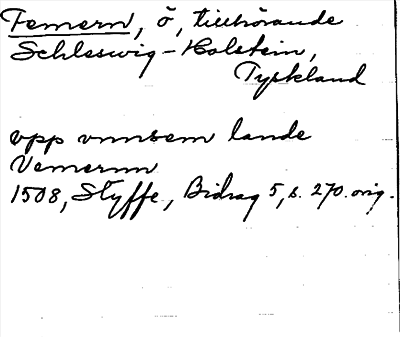 Femern, ö, tillhörande
Schleswig-Holstein,
Tyskland
opp vnnsem lande
Vemernn
1508, Styffe, Bidrag 5, s. 270. orig.